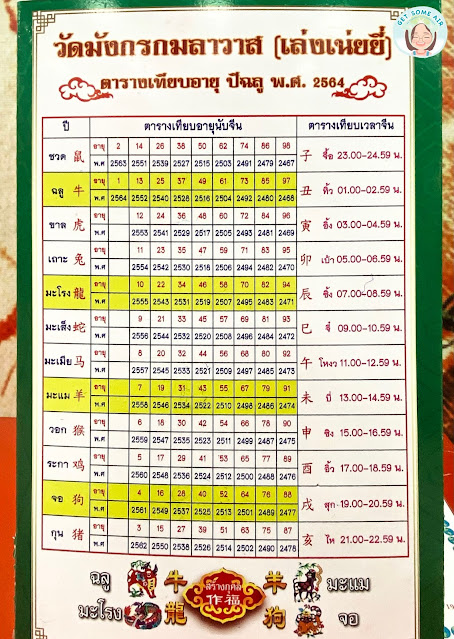 GET SOME AIR
วัดมังกรกมลาวาส (เล่งเน่ยยี่)
ตารางเทียบอายุ ปีฉลู พ.ศ. 2564
ปี ตารางเทียบอายุนับจีน ตารางเทียบเวลาจีน
ชวด 鼠 อายุ 2 14 26 38 50 62 74 86 98 子 จื้อ 23.00-24.59 น.
พ.ศ 2563 2551 2539 2527 2515 2503 2491 2479 2467
ฉลู 牛 อายุ 1 13 25 37 49 61 73 85 97 丑 ทิ้ว 01.00-02.59 น.
พ.ศ 2564 2552 2540 2528 2516 2504 2492 2480 2468
ขาล 虎 อายุ 12 24 36 48 60 72 84 96 寅 อิ๊ง 03.00-04.59 น.
พ.ศ 2553 2541 2529 2517 2505 2493 2481 2469
เถาะ 兔 อายุ 11 23 35 47 59 71 83 95 卯 เบ้า 05.00-06.59 น.
พ.ศ 2554 2542 2530 2518 2506 2494 2482 2470
มะโรง 龍 อายุ 10 22 34 46 58 70 82 94 辰 ซิ้ง 07.00-08.59 น.
พ.ศ 2555 2543 2531 2519 2507 2495 2483 2471
มะเส็ง 蛇 อายุ 9 21 33 45 57 69 81 93 巳 จี๋ 09.00-10.59 น.
พ.ศ 2556 2544 2532 2520 2508 2496 2484 2472
มะเมีย 马 อายุ 8 20 32 44 56 68 80 92 午 โหงว 11.00-12.59 น.
พ.ศ 2557 2545 2533 2521 2509 2497 2485 2473
มะแม 羊 อายุ 7 19 31 43 55 67 79 91 未 บี่ 13.00-14.59 น.
พ.ศ 2558 2546 2534 2522 2510 2498 2486 2474
วอก 猴 อายุ 6 18 30 42 54 66 78 90 申 ซิง 15.00-16.59 น.
พ.ศ 2559 2547 2535 2523 2511 2499 2487 2475
ระกา 鸡 อายุ 5 17 29 41 53 65 77 89 酉 อิ้ว 17.00-18.59 น.
พ.ศ 2560 2548 2536 2524 2512 2500 2488 2476
จอ 狗 อายุ 4 16 28 40 52 64 76 88 戌 สุก 19.00-20.59 น.
พ.ศ 2561 2549 2537 2525 2513 2501 2489 2477
กุน 猪 อายุ 3 15 27 39 51 63 75 87 亥 ไห 21.00-22.59 น.
พ.ศ 2562 2550 2538 2526 2514 2502 2490 2478
ฉลู 牛 สร้างกุศล 羊 มะแม
มะโรง 龍 作福 狗 จอ